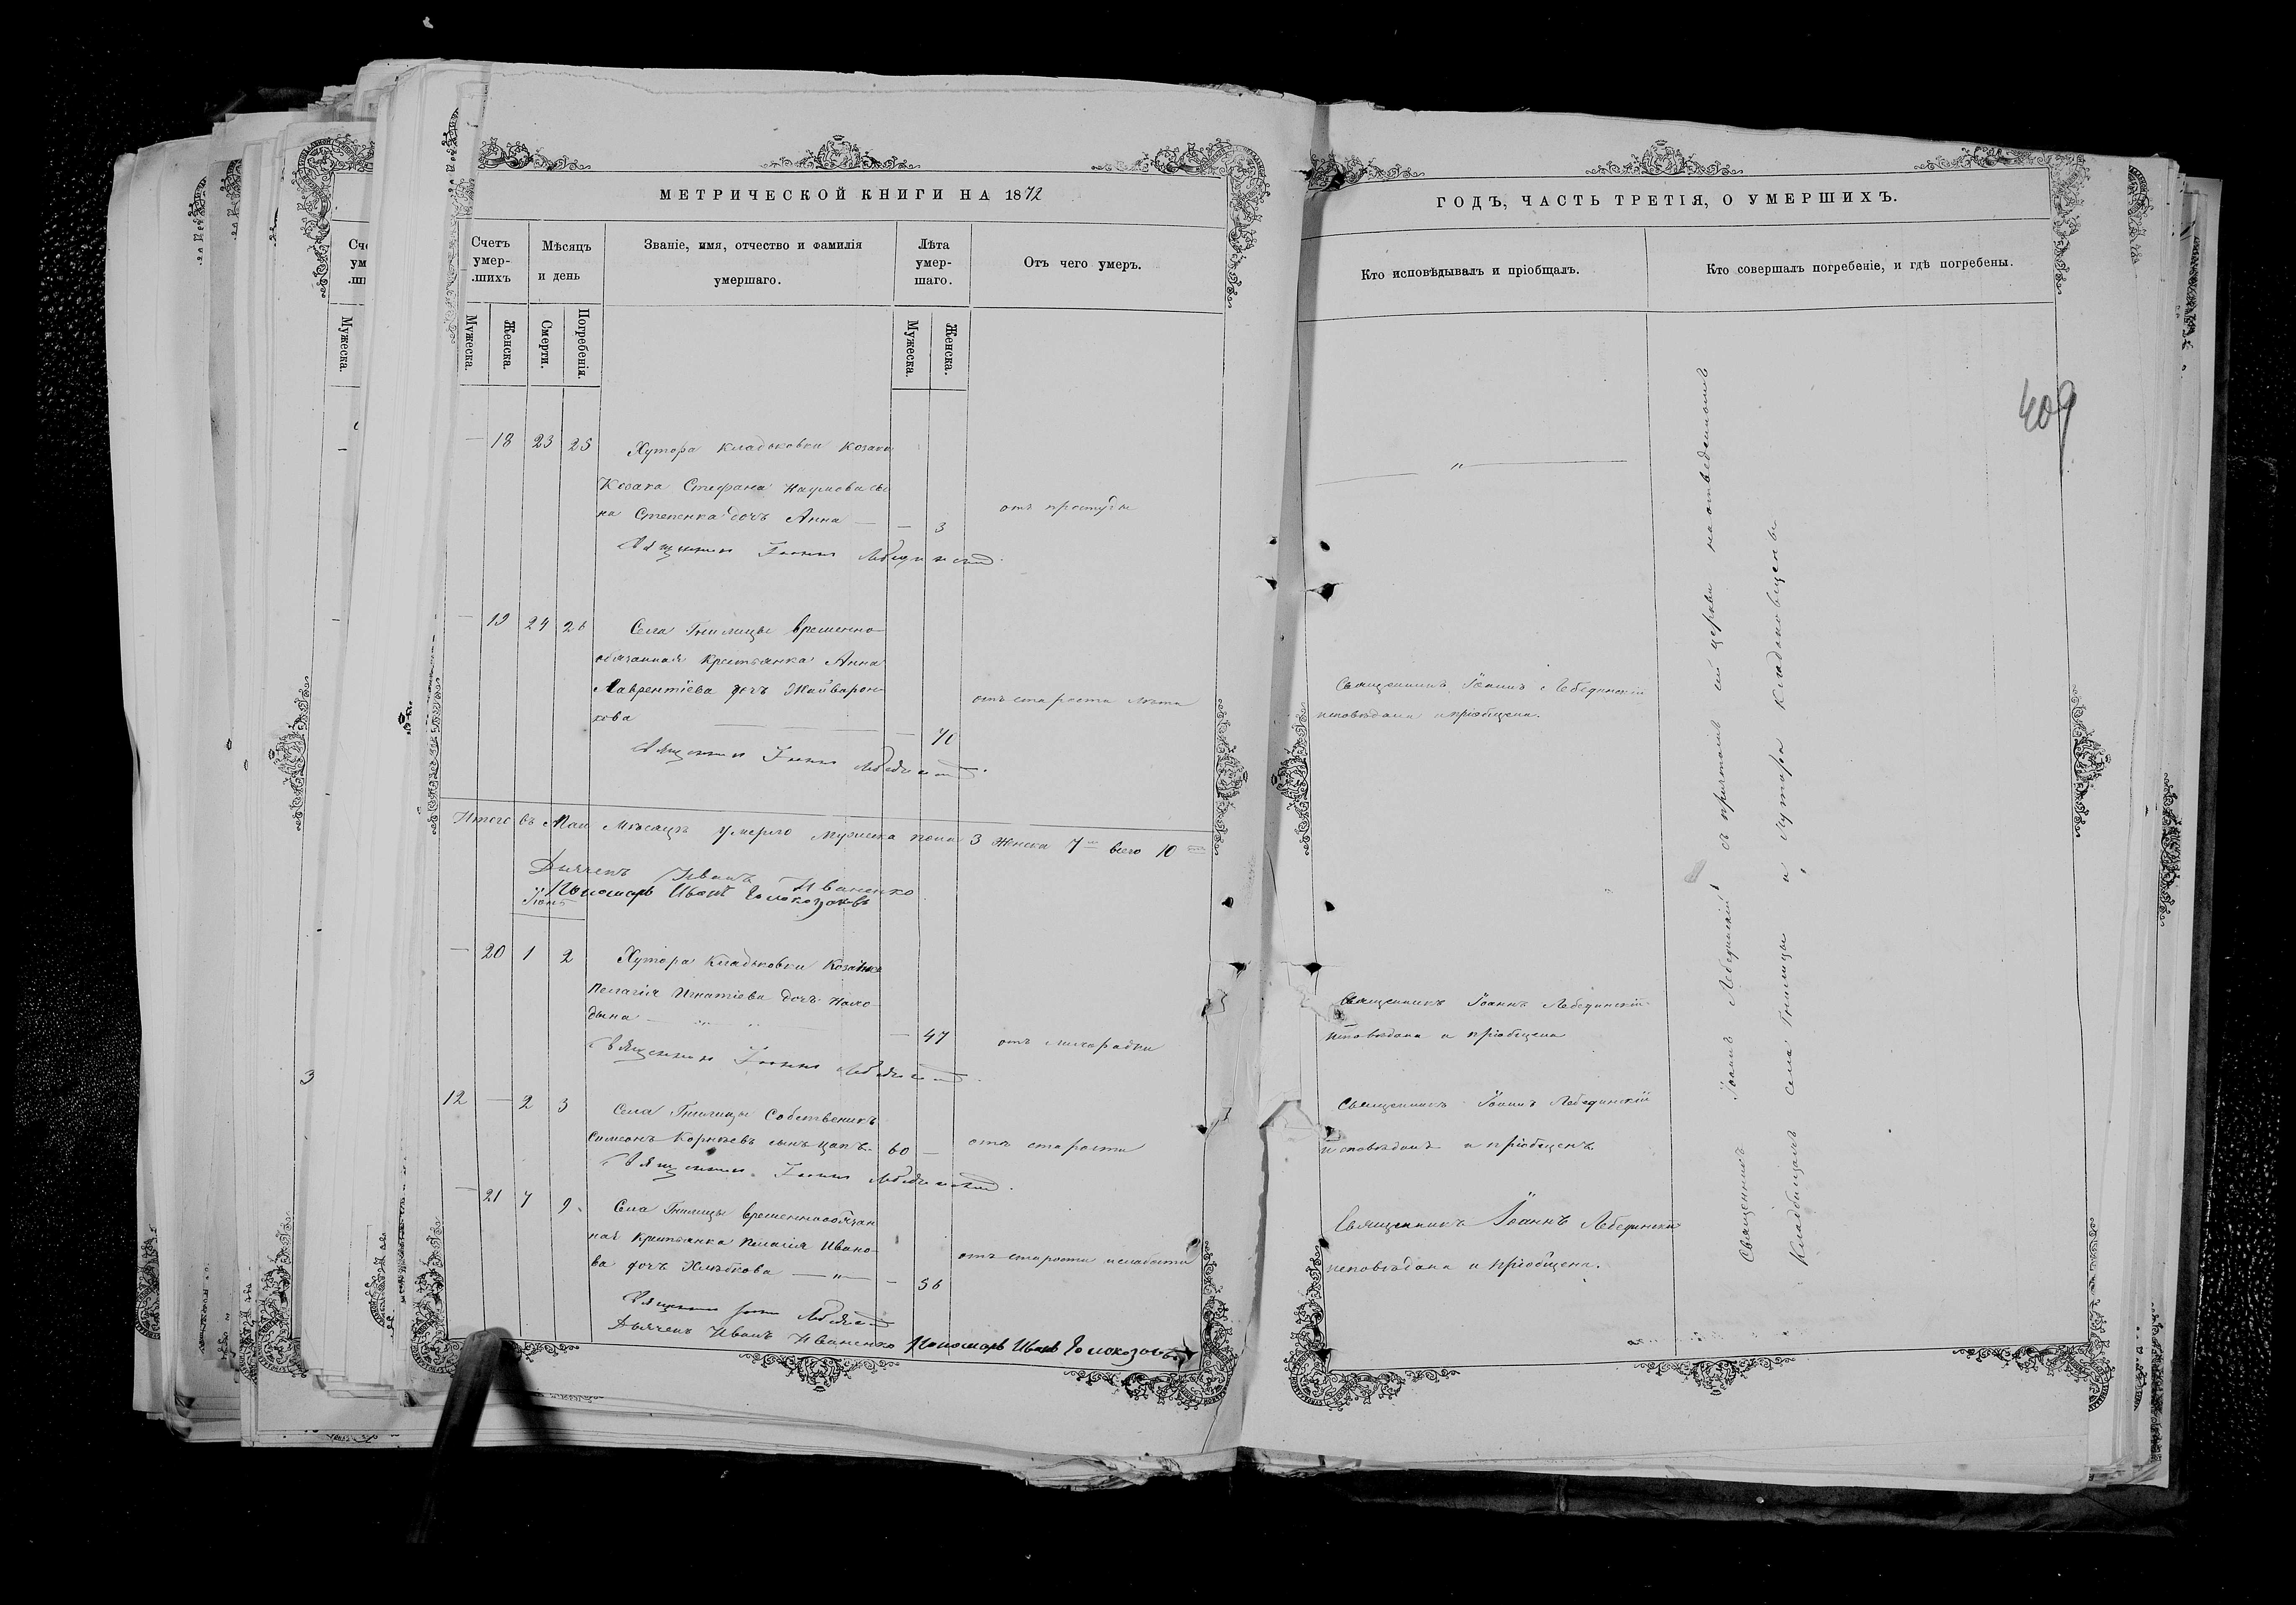 МЕТРИЧЕСКОЙ КНИГИ НА 1872
Счетъ умер-шихъ
Мѣсяцъ и день
Званіе, имя, отчество и фамилія умершаго.
Лѣта умер-шаго.
Отъ чего умеръ.
Мужеска.
Женска.
Смерти.
Погребенія.
Мужеска.
Женска.
— 18 23 25 Хутора Кладьковки Козака
Козака Стефана Наумова сы
на Степенка дочь Анна — — 3
отъ простуды
Священникъ Іоаннъ Лебединскій
— 19 24 26 Села Гнилицы временно-
обязанная крестьянка Анна
Лаврентіева дочь
кова
отъ старости
Священникъ Іоаннъ Лебединскій
Итого въ Маи Мѣсяцѣ умерло мужеска пола 3 Женска 7 всего 10
Дьячекъ Иванъ Иваненко
Пономарь Иванъ
Іюнь
— 20 1 2 Хутора Кладьковки Козачка
Пелагія Игнатіева дочь
— 47
отъ лихорадки
Священникъ Іоаннъ Лебединскій
12 — 2 3 Села Гнилицы Собственикъ
Симеонъ Корнѣевъ сынъ Цапъ 60 —
отъ старости
Священникъ Іоаннъ Лебединскій
— 21 7 9 Села Гнилицы временнообязан
ная крестьянка Пелагія Ивано-
ва дочь Хлѣбкова — " — — 56
отъ старости и слабости
Священникъ Іоаннъ Лебединскій
Дьячекъ Иванъ Иваненко Пономарь Иванъ
ГОДЪ, ЧАСТЬ ТРЕТІЯ, О УМЕРШИХЪ.
Кто исповѣдывалъ и пріобщалъ.
Кто совершалъ погребеніе, и гдѣ погребены.
409
— " —
Священникъ Іоаннъ Лебединскій
исповѣдана и пріобщена.
Священникъ Іоаннъ Лебединскій
исповѣдана и пріобщена
Священникъ Іоаннъ Лебединскій
исповѣданъ и пріобщенъ
Священникъ Іоаннъ Лебединскій
исповѣдана и пріобщена.
Священникъ Іоаннъ Лебединскій съ причтомъ сей церкви на отведенномъ
Кладбищахъ села Гнилицы и Хутора Кладьковщены